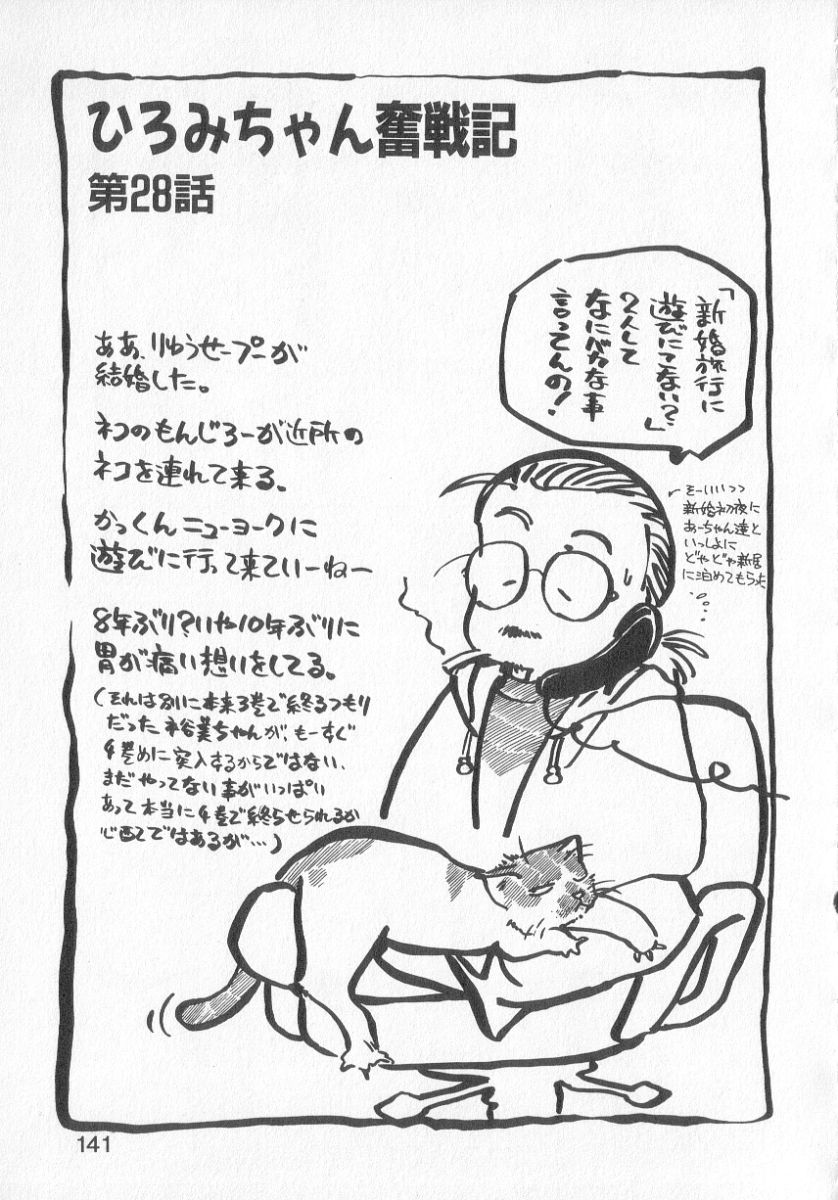 ひろみちゃん奮戦記
第28話
「新婚旅行に
遊びにこない?」
2人して
なにバカな事
言ってんの!
ああ、りゅうせープーが
結婚した。
ネコのもんじろーが近所の
ネコを連れて来る。
かっくんニューヨークに
遊びに行って来ていーねー
8年ぶり?いや10年ぶりに
胃が痛い想いをしてる。
(それは別に本来3巻で終るつもり
だった裕美ちゃんが、もーすぐ
4巻めに突入するからではない、
まだやってない事がいっぱい
あって本当に4巻で終らせられるか
心配ではあるが…)
そーいいつつ
新婚初夜に
あーちゃん達と
いっしょに
どやどや新居
に泊めてもらった
141